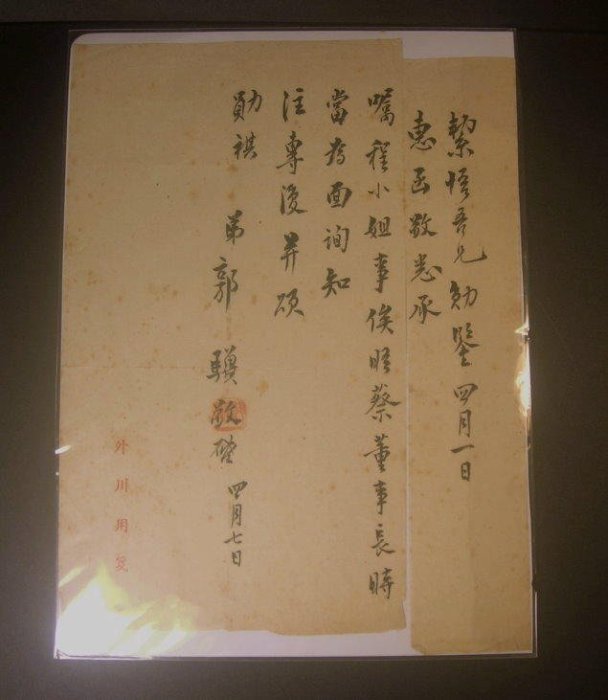 絜悟吾兄勋鑒四月一日
惠函敬悉承
囑程小姐事俟晤蔡董事長時
當為面詢知
注專復并頌
勛祺
弟郭驥敬啓四月七日
外川用箋